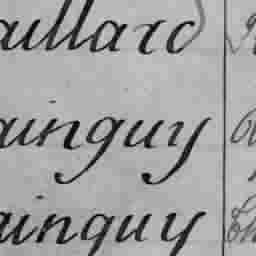 aillard
ainguy
ainguy